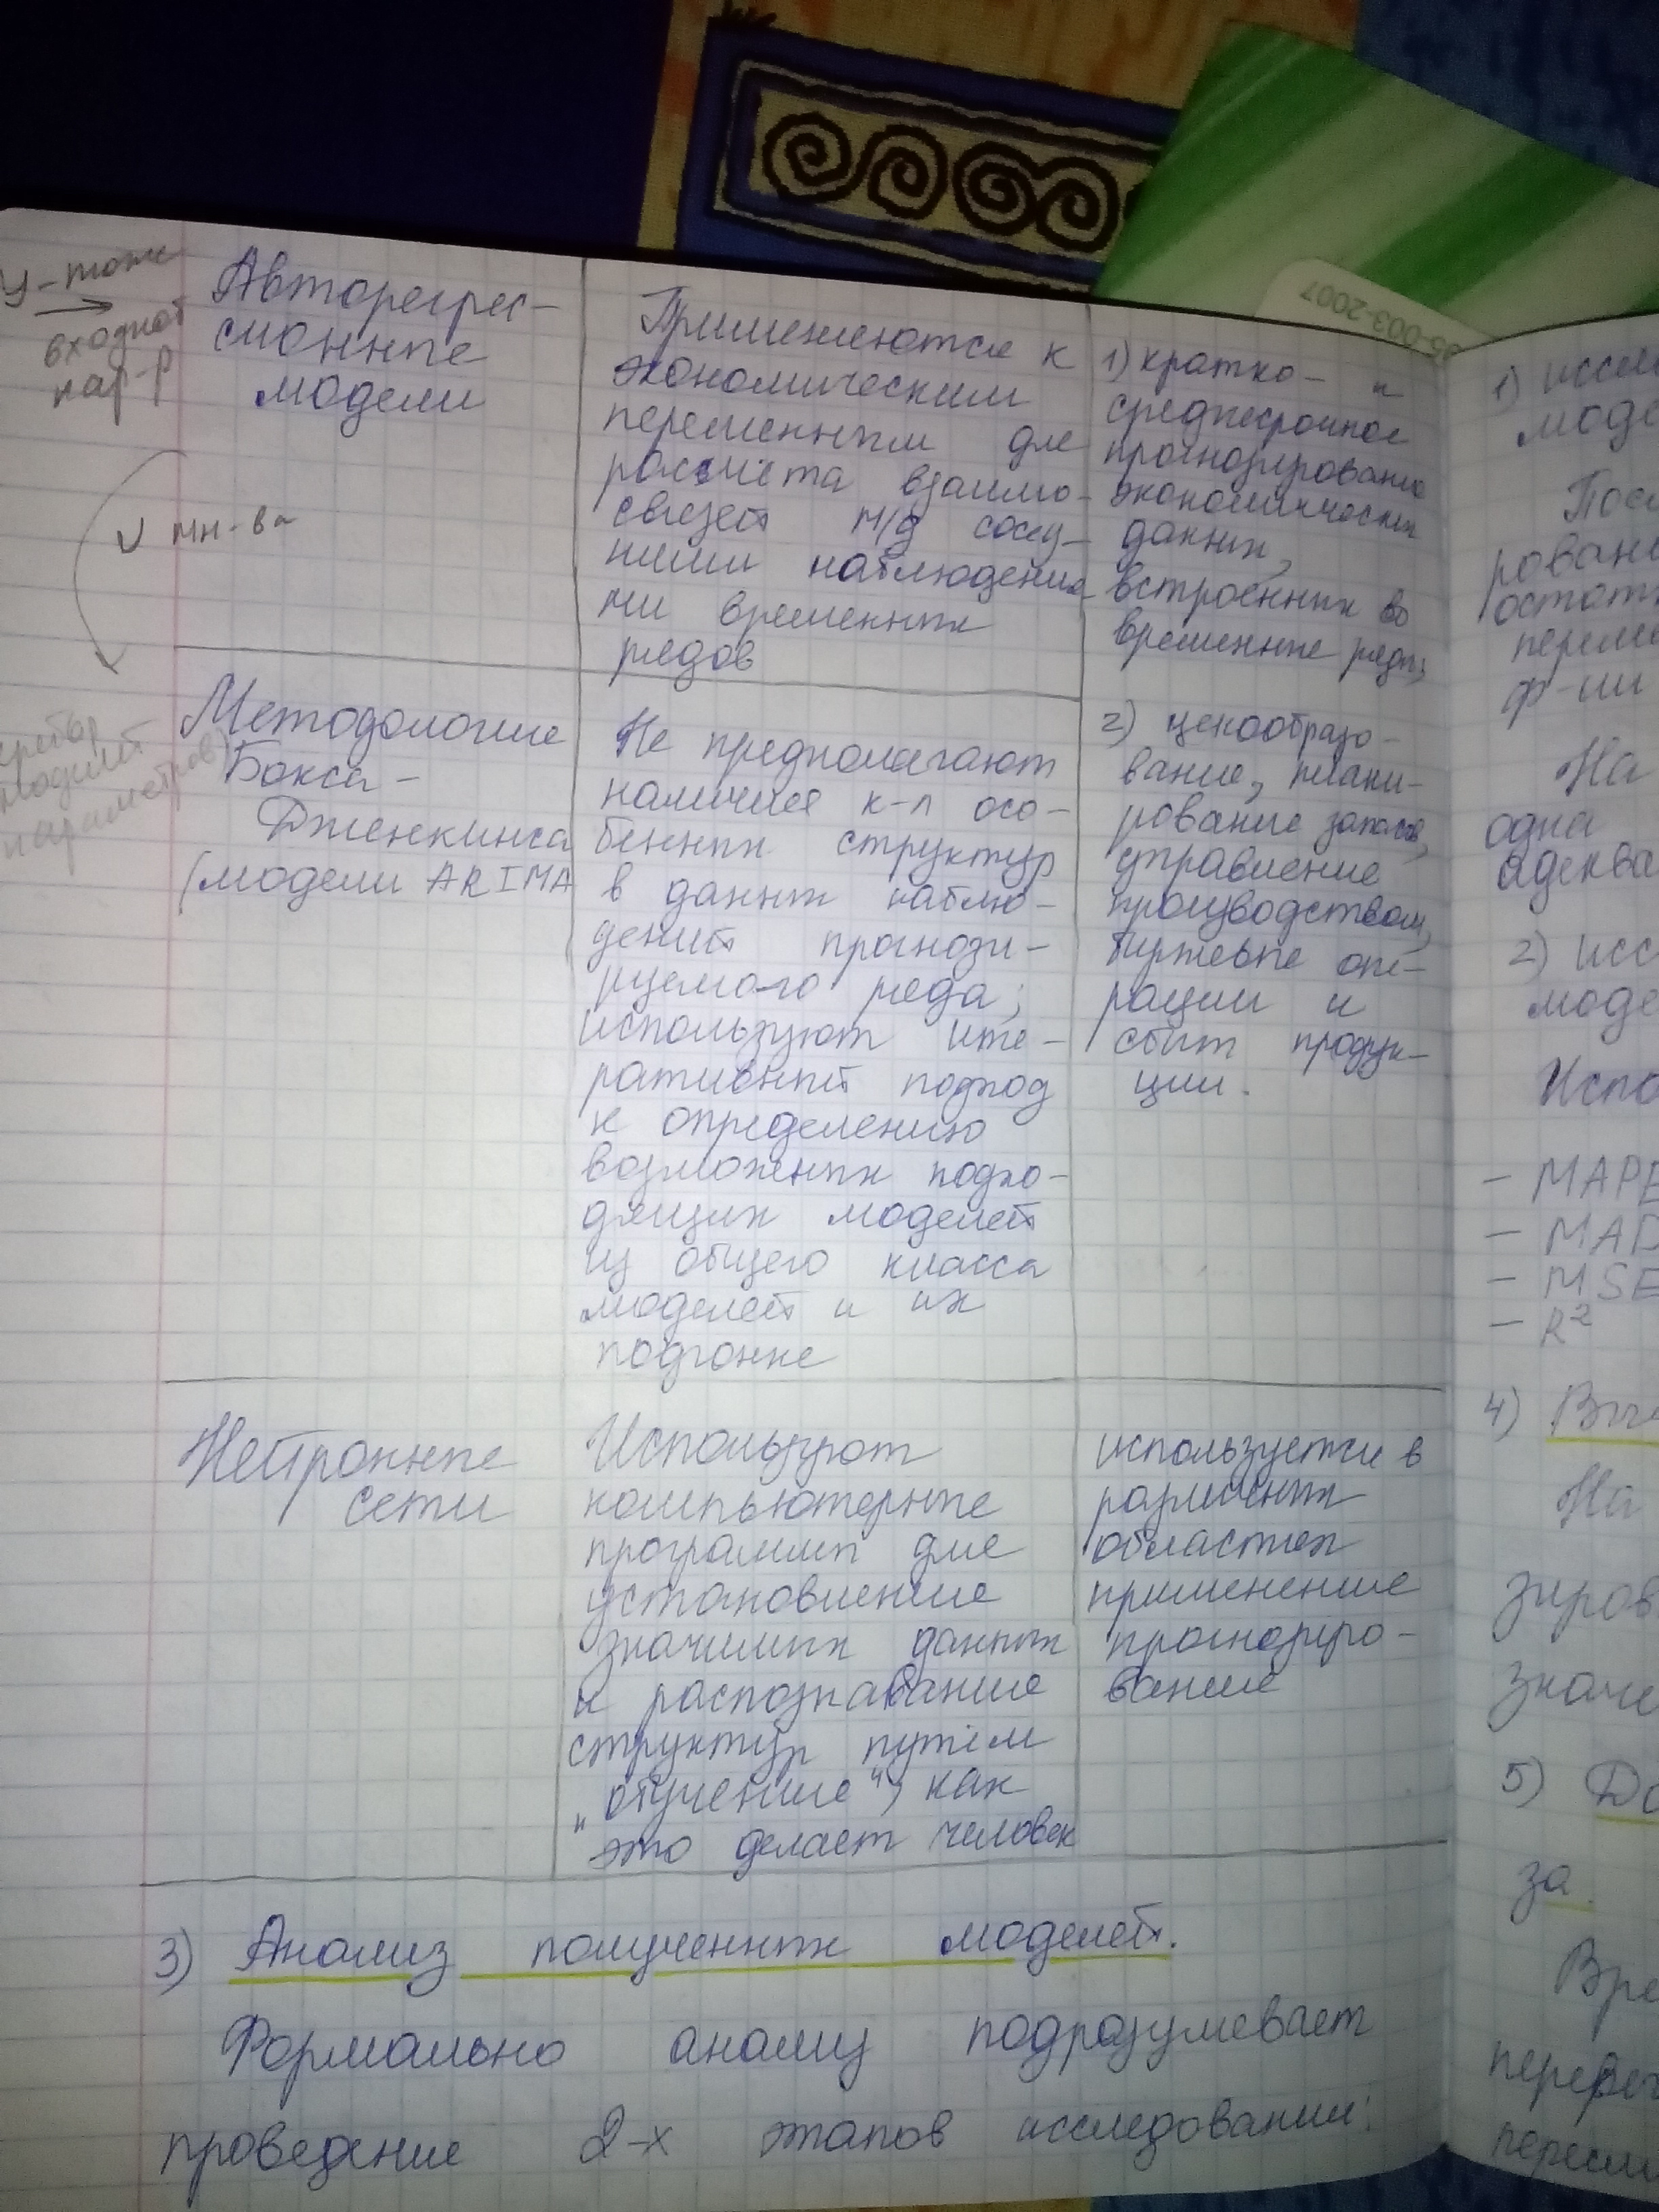 У-тоже
входной
пар-р
V мн-ва
Авторегрес-
сионные
модели
Применяются к
экономическим
переменным для
рассчёта взаимо-
связей м/д сосед-
ними наблюдения-
ми временных
рядов
1) кратко- и
среднесрочное
прогнозирование
экономических
данных,
встроенных во
временные ряды;
моделей
параметров)
Методология
Бокса-
Дженкинса
(модели ARIMA
Не предполагают
наличия к-л осо-
бенных структур
в данных наблю-
дений прогнози-
руемого ряда;
используют ите-
ративный подход
к определению
возможных подхо-
дящих моделей
из общего класса
моделей и их
подгонке
2) ценообразо-
вание, плани-
рование запасов,
управление
производством,
биржевые опе-
рации и
сбыт продук-
ции.
Нейронные
сети
Используют
компьютерные
программы для
установления
значимых данных
и распознавание
структур путём
"обучения", как
это делает человек
используется в
различных
областях
применения
прогнозиро-
вания
3) Анализ полученных моделей.
Формально анализ подразумевает
проведение 2-х этапов исследования:
1)
Под
На
одна
2)
- MAPE
- MAD
- MSE
- R²
4)
На
5)
за.
05-003-2007